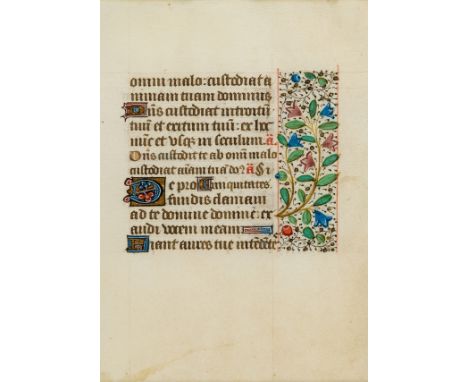 omni malo: custodiat a
nimam tuam dominus
Dn̄s custodiat introitū
tuū et exitum tuū: ex hoc
nūc et usq; in seculum. a.
Dn̄s custodit te ab omni malo
custodiat aīam tuā do⁹. a. Si
iniquitates.
De profundis clamavi
ad te domine domine: ex
audi vocem meam
Fiant aures tue intēdētē